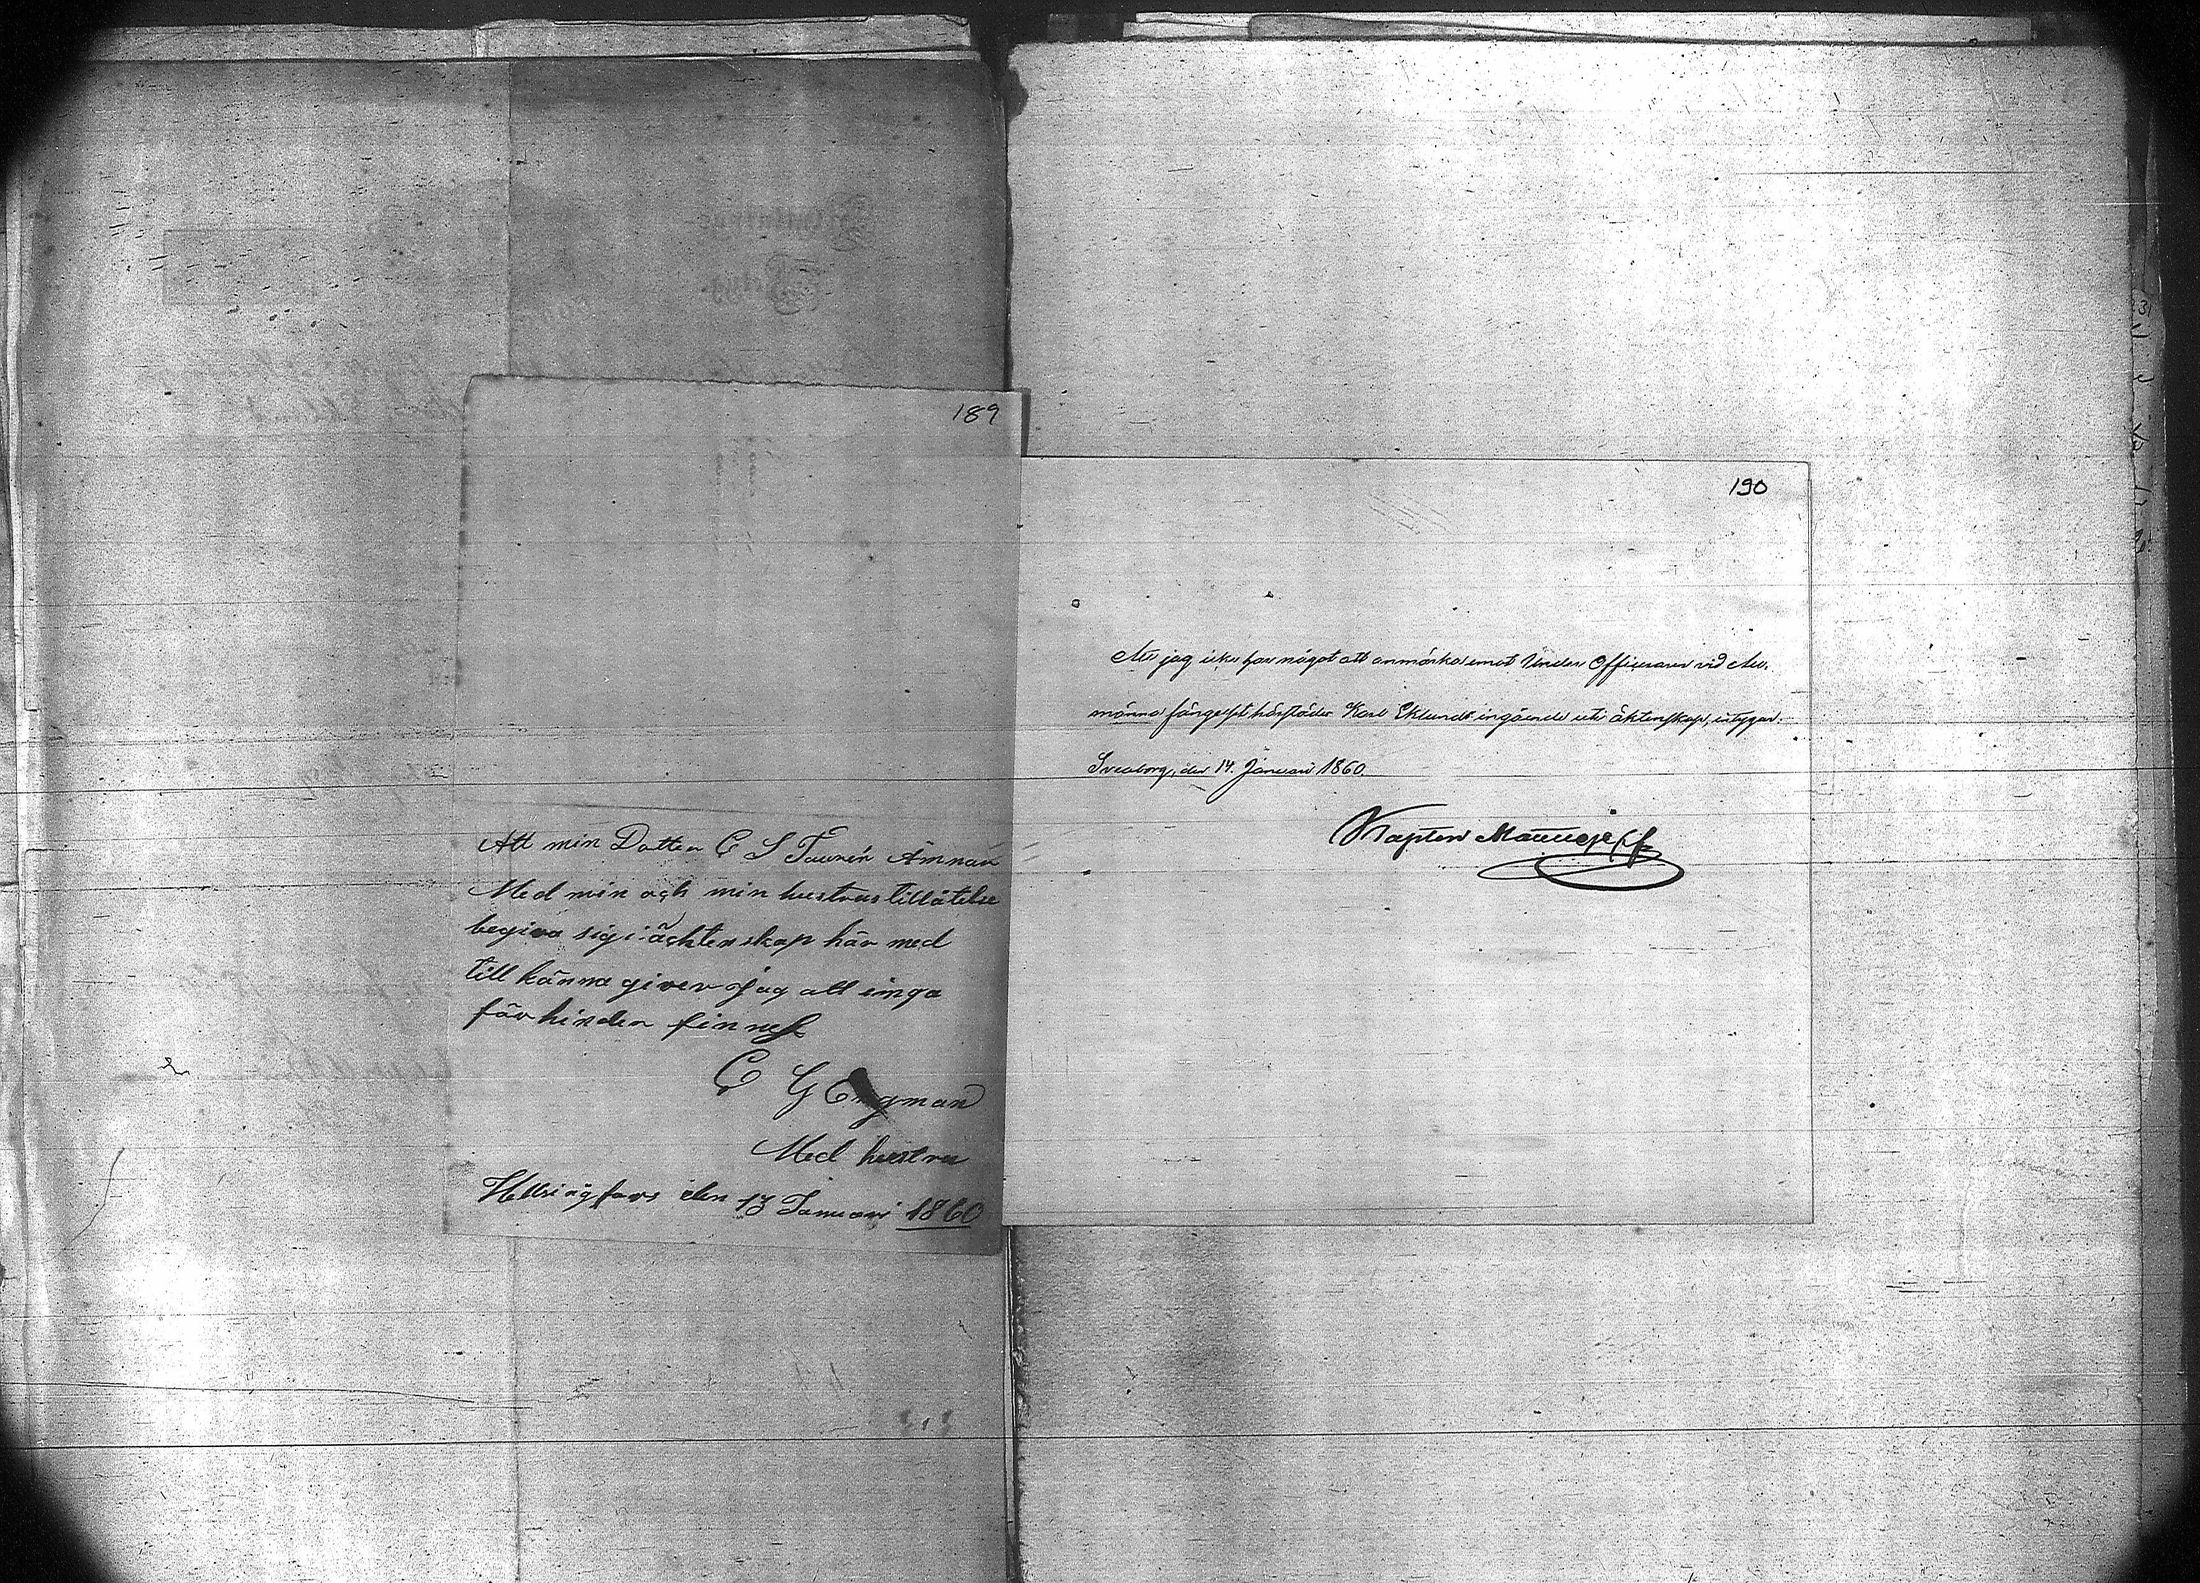 189
Att min Dotter C S Taurén Ämnar
Med min och min hustrus tillåtelse
begiva sig i ächtenskap här med
till känna giver jag att inga
för hinder finnes
C G Engman
Med hustru
Helsingfors den 13 Januari 1860
190
Att jag icke har något att anmärka emot Under Officeraren vid
fängelset härstädes Karl Eklunds ingående uti äktenskap, intygar.
Sveaborg, den 14. Januari 1860.
Kapten